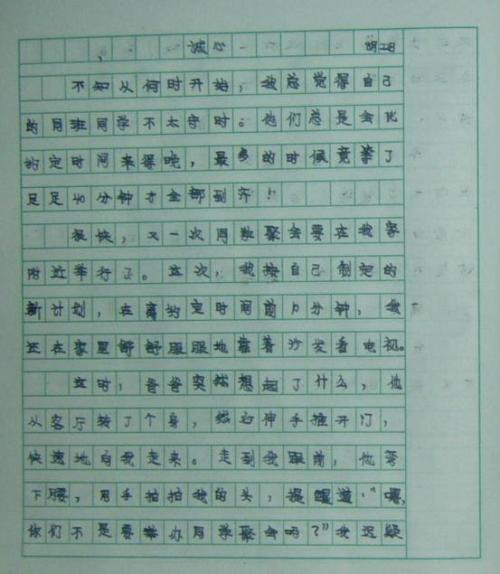 诚
不知从何时开始，我总觉得自己
的同班同学不太守时。他们总是会比
约定时间来得晚，最多的时候竟等了
足足40分钟才全部到齐！
很快，又一次同学聚会要在我家
附近举行了。这次，我按自己制定的
新计划，在离约定时间前分钟，我
还在家里舒舒服服地靠着沙发看电视。
这时，爸爸突然想起了什么，他
从客厅转了个身，然后伸手推开门，
快速地向我走来。走到我跟前，他弯
下腰，用手拍拍我的头，提醒道：“嘿，
你们不是要举办同学聚会吗？”我迟疑